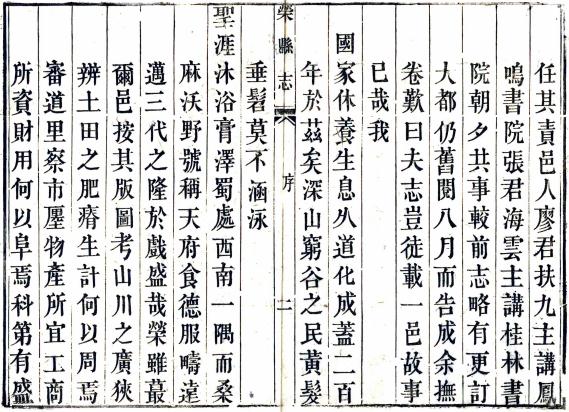 任其責邑人廖君扶九主講鳳
鳴書院張君海雲主講桂林書
院朝夕共事較前志略有更訂
大都仍舊閱八月而告成余撫
卷歎曰夫志豈徒載一邑故事
已哉我
國家休養生息久道化成蓋二百
年於茲矣深山窮谷之民黃髮
榮縣志
序
二
垂髫莫不涵泳
聖涯沐浴膏澤蜀處西南一隅而桑
麻沃野號稱天府食德服疇遠
邁三代之隆於戲盛哉榮雖蕞
爾邑按其版圖考山川之廣狹
辨土田之肥瘠生計何以周焉
審道里察市廛物產所宜工商
所資財用何以阜焉科第有盛